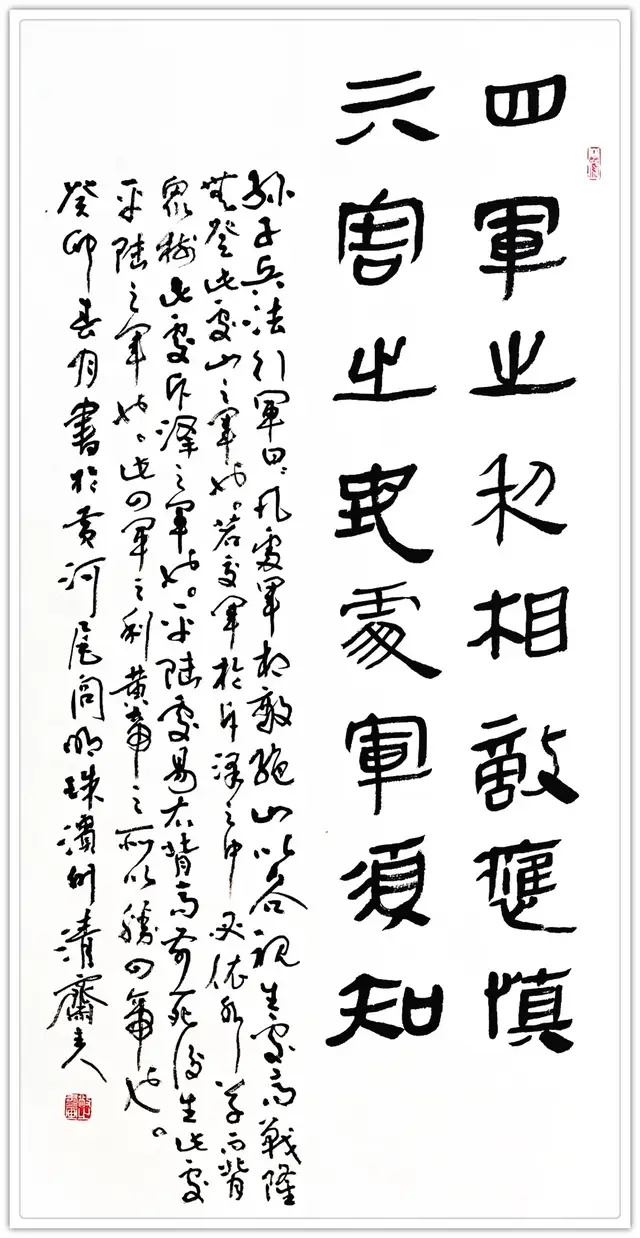 四軍之利相敵應慎
六害之地處軍須知
孫子兵法行軍曰凡處軍相敵絕山以谷視生處高戰隆
無登此處山之軍也若交軍於斥澤之中必依水草而背
眾樹此處斥澤之軍也。平陸處易右背高前死後生此處
平陸之軍也此四軍之利黄帝之所以勝四帝也。
癸卯春月書於黄河尾閭明珠濱州清齋主人